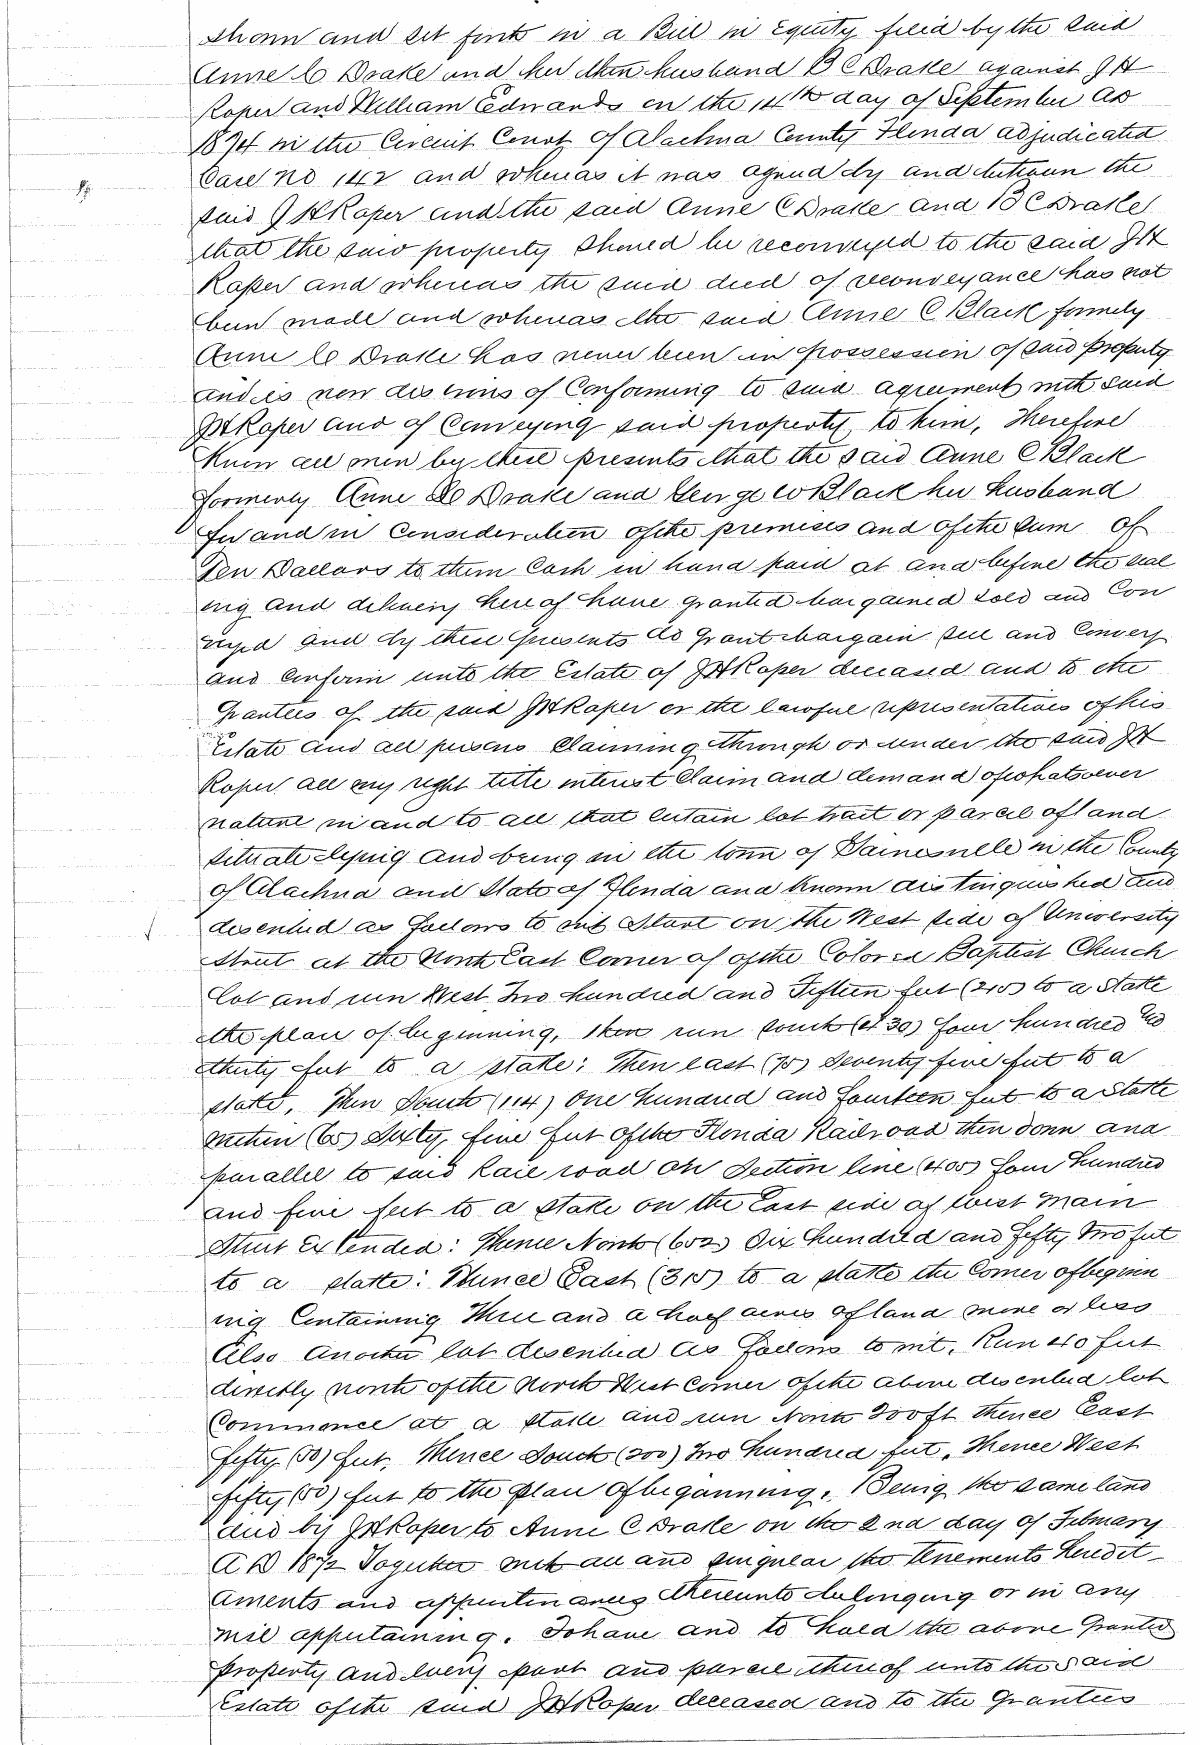 shown and set forth in a Bill in Equity filed by the said
Anne C Drake and her then husband B C Drake against J H
Roper and William Edwards on the 14th day of September AD
1874 in the Circuit Court of Alachua County Florida adjudicated
Case no 142 and whereas it was agreed by and between the
said J H Roper and the said Anne C Drake and B C Drake
that the said property should be reconveyed to the said J H
Roper and whereas the said deed of reconveyance has not
been made and whereas the said Anne C Black formerly
Anne C Drake has never been in possession of said property
and is now desirous of Conforming to said agreement with said
J H Roper and of Conveying said property to him, Therefore
Know all men by these presents that the said Anne C Black
formerly Anne C Drake and George W Black her husband
for and in Consideration of the premises and of the Sum of
Ten Dollars to them Cash in hand paid at and before the seal
ing and delivery here of have granted bargained sold and Con
veyed and by these presents do grant bargain sell and Convey
and Confirm unto the Estate of J H Roper deceased and to the
Grantees of the said J H Roper or the lawful representatives of his
Estate and all persons Claiming through or under the said J H
Roper all my right title interest Claim and demand of whatsoever
nature in and to all that certain lot tract or parcel of land
situate lying and being in the town of Gainesville in the County
of Alachua and State of Florida and known distinguished and
described as follows to wit Start on the West side of University
Street at the North East Corner of of the Colored Baptist Church
Lot and run West Two hundred and Fifteen feet (215) to a stake
the place of beginning, then run south (430) four hundred and
thirty feet to a stake: Then east (75) Seventy five feet to a
stake, Then South (114) One hundred and fourteen feet to a stake
within (65) Sixty, five feet of the Florida Railroad then down and
parallel to said Rail road on Section line (405) four hundred
and five feet to a stake on the East side of West Main
Street Extended: Thence North (652) Six hundred and fifty two feet
to a stake: Thence East (315) to a stake the Corner of beginn
ing Containing Three and a half acres of land more or less
Also another lot described as follows to wit, Run 40 feet
directly north of the North West Corner of the above described lot
Commence at a stake and run North 200 ft thence East
fifty (50) feet, Thence South (200) Two hundred feet, Thence West
fifty (50) feet to the place of beginning. Being the same land
deed by J H Roper to Anne C Drake on the 2nd day of February
A D 1872 Together with all and singular the Tenements Heredit-
aments and appurtenances thereunto belonging or in any
wise appertaining. To have and to hold the above Granted
property and every part and parcel thereof unto the said
Estate of the said J H Roper deceased and to the Grantees